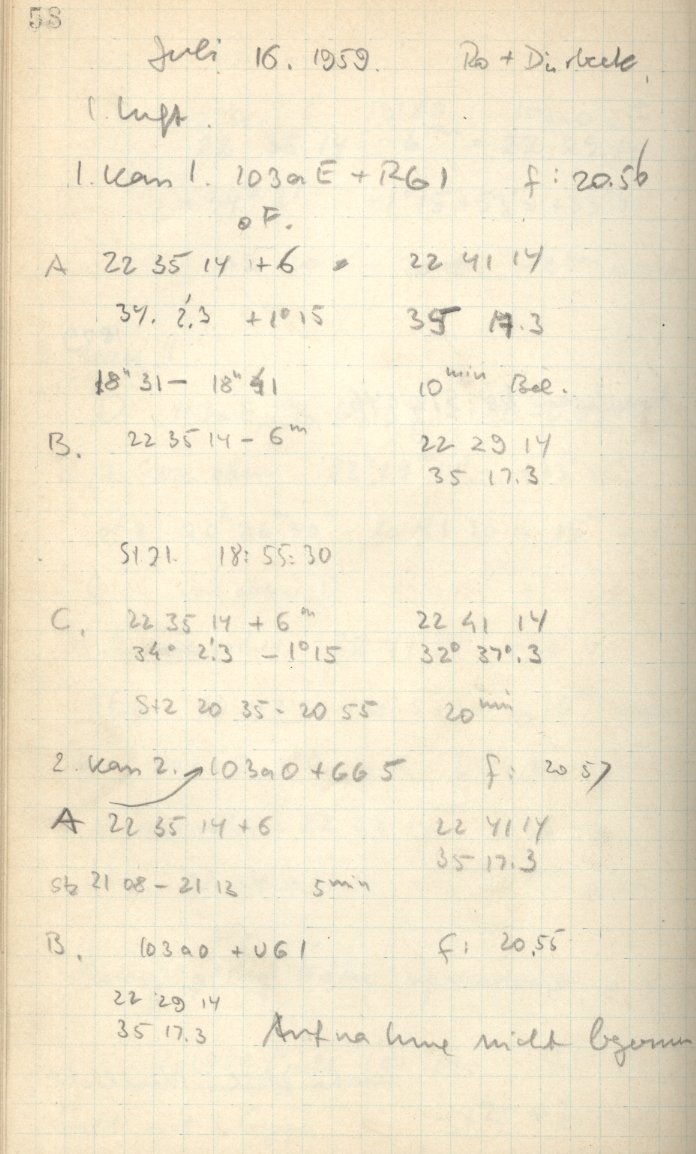 58
Juli 16. 1959. Ro + Dürbeck.
1. Luft.
1. Kass 1. 103aE + RG1 f: 20.56
oF.
A 22 35 14 + 6 22 41 14
34. 2.'3 + 1° 15 35 17.3
18h 31 – 18h 41 10min Bel.
B. 22 35 14 – 6m 22 29 14
35 17.3
18:55:30
C. 22 35 14 + 6m 22 41 14
34° 2.'3 – 1° 15 32° 37°.3
Stz 20 35 - 20 55 20min
2. Kass 2. 103aO + GG5 f: 20 57
A 22 35 14 + 6 22 41 14
35 17.3
Stz 21 08 – 21 13 5min
B. 103aO + UG1 f: 20.55
22 29 14
35 17.3 Aufnahme nicht